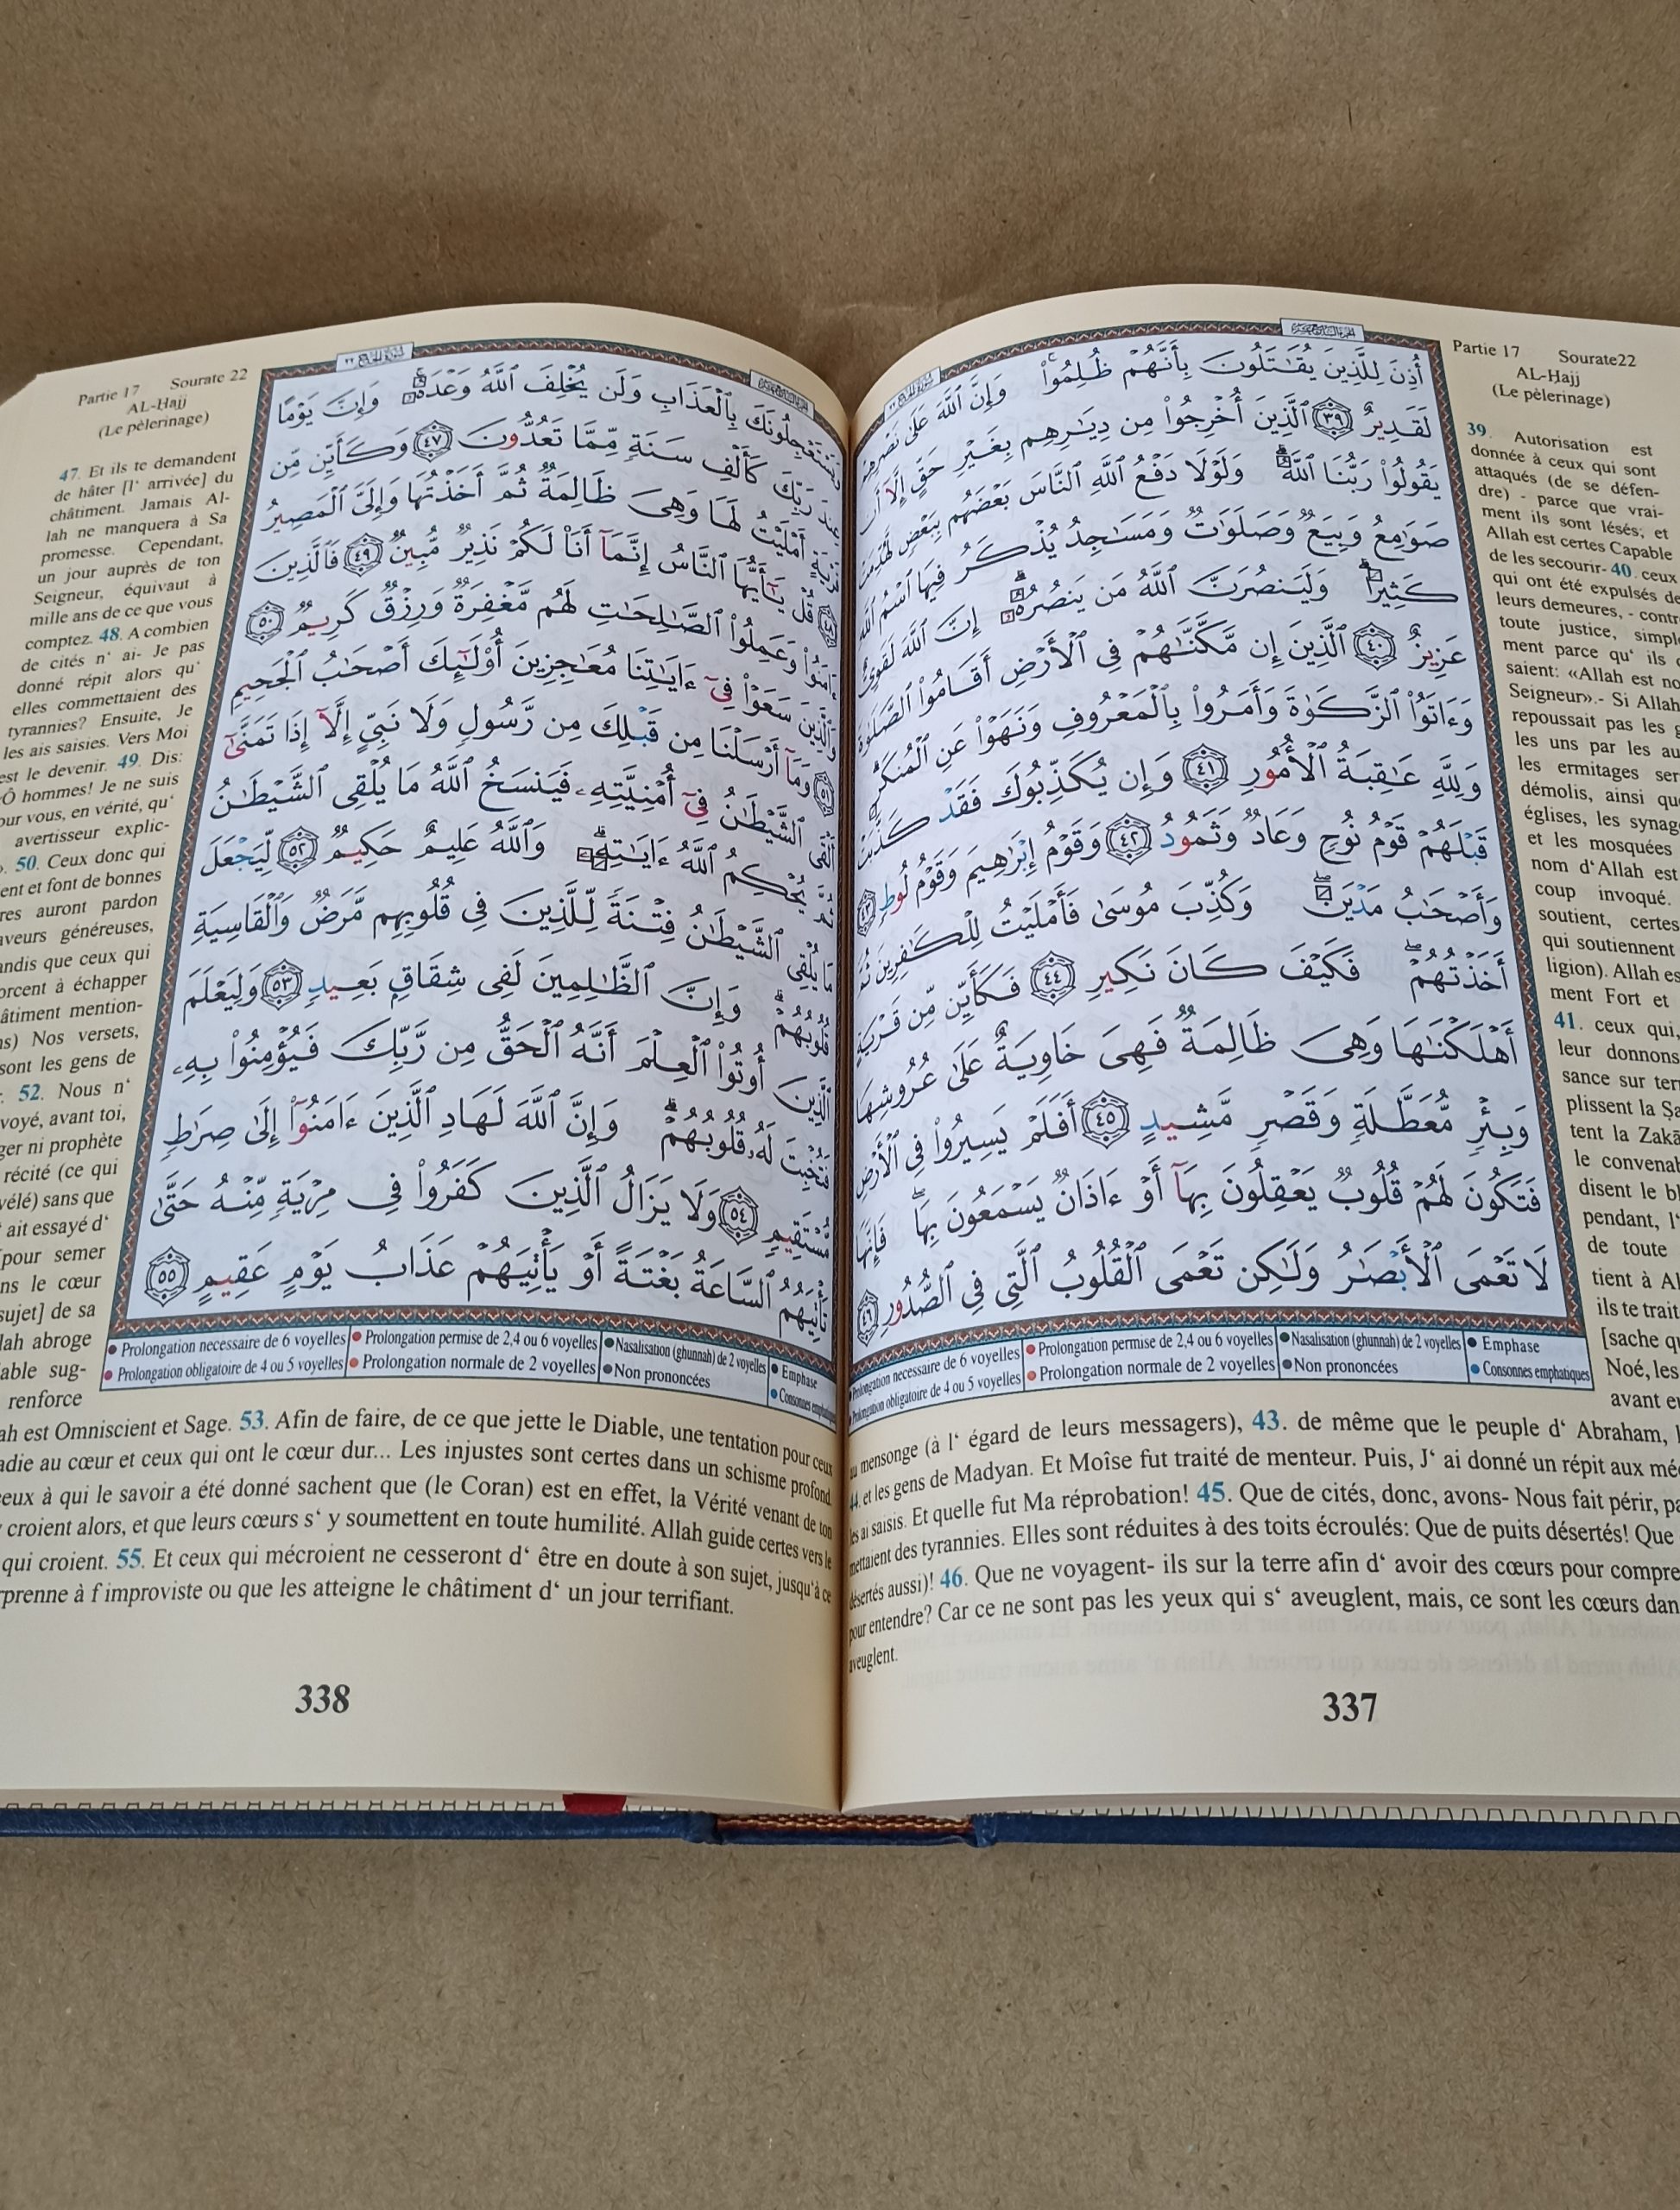 Partie 17 Sourate22
AL-Hajj
(Le pèlerinage)
أُذِنَ لِلَّذِينَ يُقَٰتَلُونَ بِأَنَّهُمۡ ظُلِمُواْۚ وَإِنَّ ٱللَّهَ عَلَىٰ نَصۡرِهِمۡ
لَقَدِيرٌ ٣٩ ٱلَّذِينَ أُخۡرِجُواْ مِن دِيَٰرِهِم بِغَيۡرِ حَقٍّ إِلَّآ أَن
يَقُولُواْ رَبُّنَا ٱللَّهُۗ وَلَوۡلَا دَفۡعُ ٱللَّهِ ٱلنَّاسَ بَعۡضَهُم بِبَعۡضٖ لَّهُدِّمَتۡ
صَوَٰمِعُ وَبِيَعٞ وَصَلَوَٰتٞ وَمَسَٰجِدُ يُذۡكَرُ فِيهَا ٱسۡمُ ٱللَّهِ
كَثِيرٗاۗ وَلَيَنصُرَنَّ ٱللَّهُ مَن يَنصُرُهُۥٓۗ إِنَّ ٱللَّهَ لَقَوِيٌّ
عَزِيزٌ ٤٠ ٱلَّذِينَ إِن مَّكَّنَّٰهُمۡ فِي ٱلۡأَرۡضِ أَقَامُواْ ٱلصَّلَوٰةَ
وَءَاتَوُاْ ٱلزَّكَوٰةَ وَأَمَرُواْ بِٱلۡمَعۡرُوفِ وَنَهَوۡاْ عَنِ ٱلۡمُنكَرِۗ
وَلِلَّهِ عَٰقِبَةُ ٱلۡأُمُورِ ٤١ وَإِن يُكَذِّبُوكَ فَقَدۡ كَذَّبَتۡ
قَبۡلَهُمۡ قَوۡمُ نُوحٖ وَعَادٞ وَثَمُودُ ٤٢ وَقَوۡمُ إِبۡرَٰهِيمَ وَقَوۡمُ لُوطٖ ٤٣
وَأَصۡحَٰبُ مَدۡيَنَۖ وَكُذِّبَ مُوسَىٰ فَأَمۡلَيۡتُ لِلۡكَٰفِرِينَ ثُمَّ
أَخَذۡتُهُمۡۖ فَكَيۡفَ كَانَ نَكِيرِ ٤٤ فَكَأَيِّن مِّن قَرۡيَةٍ
أَهۡلَكۡنَٰهَا وَهِيَ ظَالِمَةٞ فَهِيَ خَاوِيَةٌ عَلَىٰ عُرُوشِهَا
وَبِئۡرٖ مُّعَطَّلَةٖ وَقَصۡرٖ مَّشِيدٍ ٤٥ أَفَلَمۡ يَسِيرُواْ فِي ٱلۡأَرۡضِ
فَتَكُونَ لَهُمۡ قُلُوبٞ يَعۡقِلُونَ بِهَآ أَوۡ ءَاذَانٞ يَسۡمَعُونَ بِهَاۖ فَإِنَّهَا
لَا تَعۡمَى ٱلۡأَبۡصَٰرُ وَلَٰكِن تَعۡمَى ٱلۡقُلُوبُ ٱلَّتِي فِي ٱلصُّدُورِ ٤٦
39. Autorisation est
donnée à ceux qui sont
attaqués (de se défen-
dre) - parce que vrai-
ment ils sont lésés; et
Allah est certes Capable
de les secourir- 40. ceux
qui ont été expulsés de
leurs demeures, - contr
toute justice, simple
ment parce qu‘ ils
saient: «Allah est no
Seigneur».- Si Allah
repoussait pas les
les uns par les au
les ermitages ser
démolis, ainsi qu
églises, les synag
et les mosquées
nom d‘Allah est
coup invoqué.
soutient, certes
qui soutiennent
ligion). Allah es
ment Fort et
41. ceux qui,
leur donnons
sance sur ter
plissent la Ṣa
tent la Zakā
le convenab
disent le bl
pendant, l‘
de toute
tient à Al
ils te trait
[sache qu
Noé, les
avant e
Prolongation necessaire de 6 voyelles Prolongation permise de 2,4 ou 6 voyelles Nasalisation (ghunnah) de 2 voyelles Emphase
Prolongation obligatoire de 4 ou 5 voyelles Prolongation normale de 2 voyelles Non prononcées Consonnes emphatiques
au mensonge (à l‘ égard de leurs messagers), 43. de même que le peuple d‘ Abraham,
44. et les gens de Madyan. Et Moïse fut traité de menteur. Puis, J‘ ai donné un répit aux
les ai saisis. Et quelle fut Ma réprobation! 45. Que de cités, donc, avons- Nous fait périr,
mettaient des tyrannies. Elles sont réduites à des toits écroulés: Que de puits désertés! Que
désertés aussi)! 46. Que ne voyagent- ils sur la terre afin d‘ avoir des cœurs pour compre
pour entendre? Car ce ne sont pas les yeux qui s‘ aveuglent, mais, ce sont les cœurs dan
aveuglent.
337
Partie 17 Sourate 22
AL-Hajj
(Le pèlerinage)
وَيَسۡتَعۡجِلُونَكَ بِٱلۡعَذَابِ وَلَن يُخۡلِفَ ٱللَّهُ وَعۡدَهُۥۚ وَإِنَّ يَوۡمًا
عِندَ رَبِّكَ كَأَلۡفِ سَنَةٖ مِّمَّا تَعُدُّونَ ٤٧ وَكَأَيِّن مِّن
قَرۡيَةٍ أَمۡلَيۡتُ لَهَا وَهِيَ ظَالِمَةٞ ثُمَّ أَخَذۡتُهَا وَإِلَيَّ ٱلۡمَصِيرُ
٤٨ قُلۡ يَٰٓأَيُّهَا ٱلنَّاسُ إِنَّمَآ أَنَا۠ لَكُمۡ نَذِيرٞ مُّبِينٞ ٤٩ فَٱلَّذِينَ
ءَامَنُواْ وَعَمِلُواْ ٱلصَّٰلِحَٰتِ لَهُم مَّغۡفِرَةٞ وَرِزۡقٞ كَرِيمٞ ٥٠
وَٱلَّذِينَ سَعَوۡاْ فِيٓ ءَايَٰتِنَا مُعَٰجِزِينَ أُوْلَٰٓئِكَ أَصۡحَٰبُ ٱلۡجَحِيمِ
٥١ وَمَآ أَرۡسَلۡنَا مِن قَبۡلِكَ مِن رَّسُولٖ وَلَا نَبِيٍّ إِلَّآ إِذَا تَمَنَّىٰٓ
أَلۡقَى ٱلشَّيۡطَٰنُ فِيٓ أُمۡنِيَّتِهِۦ فَيَنسَخُ ٱللَّهُ مَا يُلۡقِي ٱلشَّيۡطَٰنُ
ثُمَّ يُحۡكِمُ ٱللَّهُ ءَايَٰتِهِۦۗ وَٱللَّهُ عَلِيمٌ حَكِيمٞ ٥٢ لِّيَجۡعَلَ
مَا يُلۡقِي ٱلشَّيۡطَٰنُ فِتۡنَةٗ لِّلَّذِينَ فِي قُلُوبِهِم مَّرَضٞ وَٱلۡقَاسِيَةِ
قُلُوبُهُمۡۗ وَإِنَّ ٱلظَّٰلِمِينَ لَفِي شِقَاقِۭ بَعِيدٖ ٥٣ وَلِيَعۡلَمَ
ٱلَّذِينَ أُوتُواْ ٱلۡعِلۡمَ أَنَّهُ ٱلۡحَقُّ مِن رَّبِّكَ فَيُؤۡمِنُواْ بِهِۦ
فَتُخۡبِتَ لَهُۥ قُلُوبُهُمۡۗ وَإِنَّ ٱللَّهَ لَهَادِ ٱلَّذِينَ ءَامَنُوٓاْ إِلَىٰ صِرَٰطٖ
مُّسۡتَقِيمٖ ٥٤ وَلَا يَزَالُ ٱلَّذِينَ كَفَرُواْ فِي مِرۡيَةٖ مِّنۡهُ حَتَّىٰ
تَأۡتِيَهُمُ ٱلسَّاعَةُ بَغۡتَةً أَوۡ يَأۡتِيَهُمۡ عَذَابُ يَوۡمٍ عَقِيمٍ ٥٥
47. Et ils te demandent
de hâter [l‘ arrivée] du
châtiment. Jamais Al-
lah ne manquera à Sa
promesse. Cependant,
un jour auprès de ton
Seigneur, équivaut à
mille ans de ce que vous
comptez. 48. A combien
de cités n‘ ai- Je pas
donné répit alors qu‘
elles commettaient des
tyrannies? Ensuite, Je
les ais saisies. Vers Moi
est le devenir. 49. Dis:
Ô hommes! Je ne suis
our vous, en vérité, qu‘
avertisseur explic-
50. Ceux donc qui
ent et font de bonnes
res auront pardon
aveurs généreuses,
andis que ceux qui
orcent à échapper
âtiment mention-
s) Nos versets,
sont les gens de
52. Nous n‘
voyé, avant toi,
ger ni prophète
récité (ce qui
vélé) sans que
ait essayé d‘
pour semer
ns le cœur
sujet] de sa
lah abroge
able sug-
renforce
Prolongation necessaire de 6 voyelles Prolongation permise de 2,4 ou 6 voyelles Nasalisation (ghunnah) de 2 voyelles Emphase
Prolongation obligatoire de 4 ou 5 voyelles Prolongation normale de 2 voyelles Non prononcées Consonnes emphatiques
ah est Omniscient et Sage. 53. Afin de faire, de ce que jette le Diable, une tentation pour ceux
adie au cœur et ceux qui ont le cœur dur... Les injustes sont certes dans un schisme profond.
ceux à qui le savoir a été donné sachent que (le Coran) est en effet, la Vérité venant de ton
y croient alors, et que leurs cœurs s‘ y soumettent en toute humilité. Allah guide certes vers le
qui croient. 55. Et ceux qui mécroient ne cesseront d‘ être en doute à son sujet, jusqu‘à ce
rprenne à f improviste ou que les atteigne le châtiment d‘ un jour terrifiant.
338